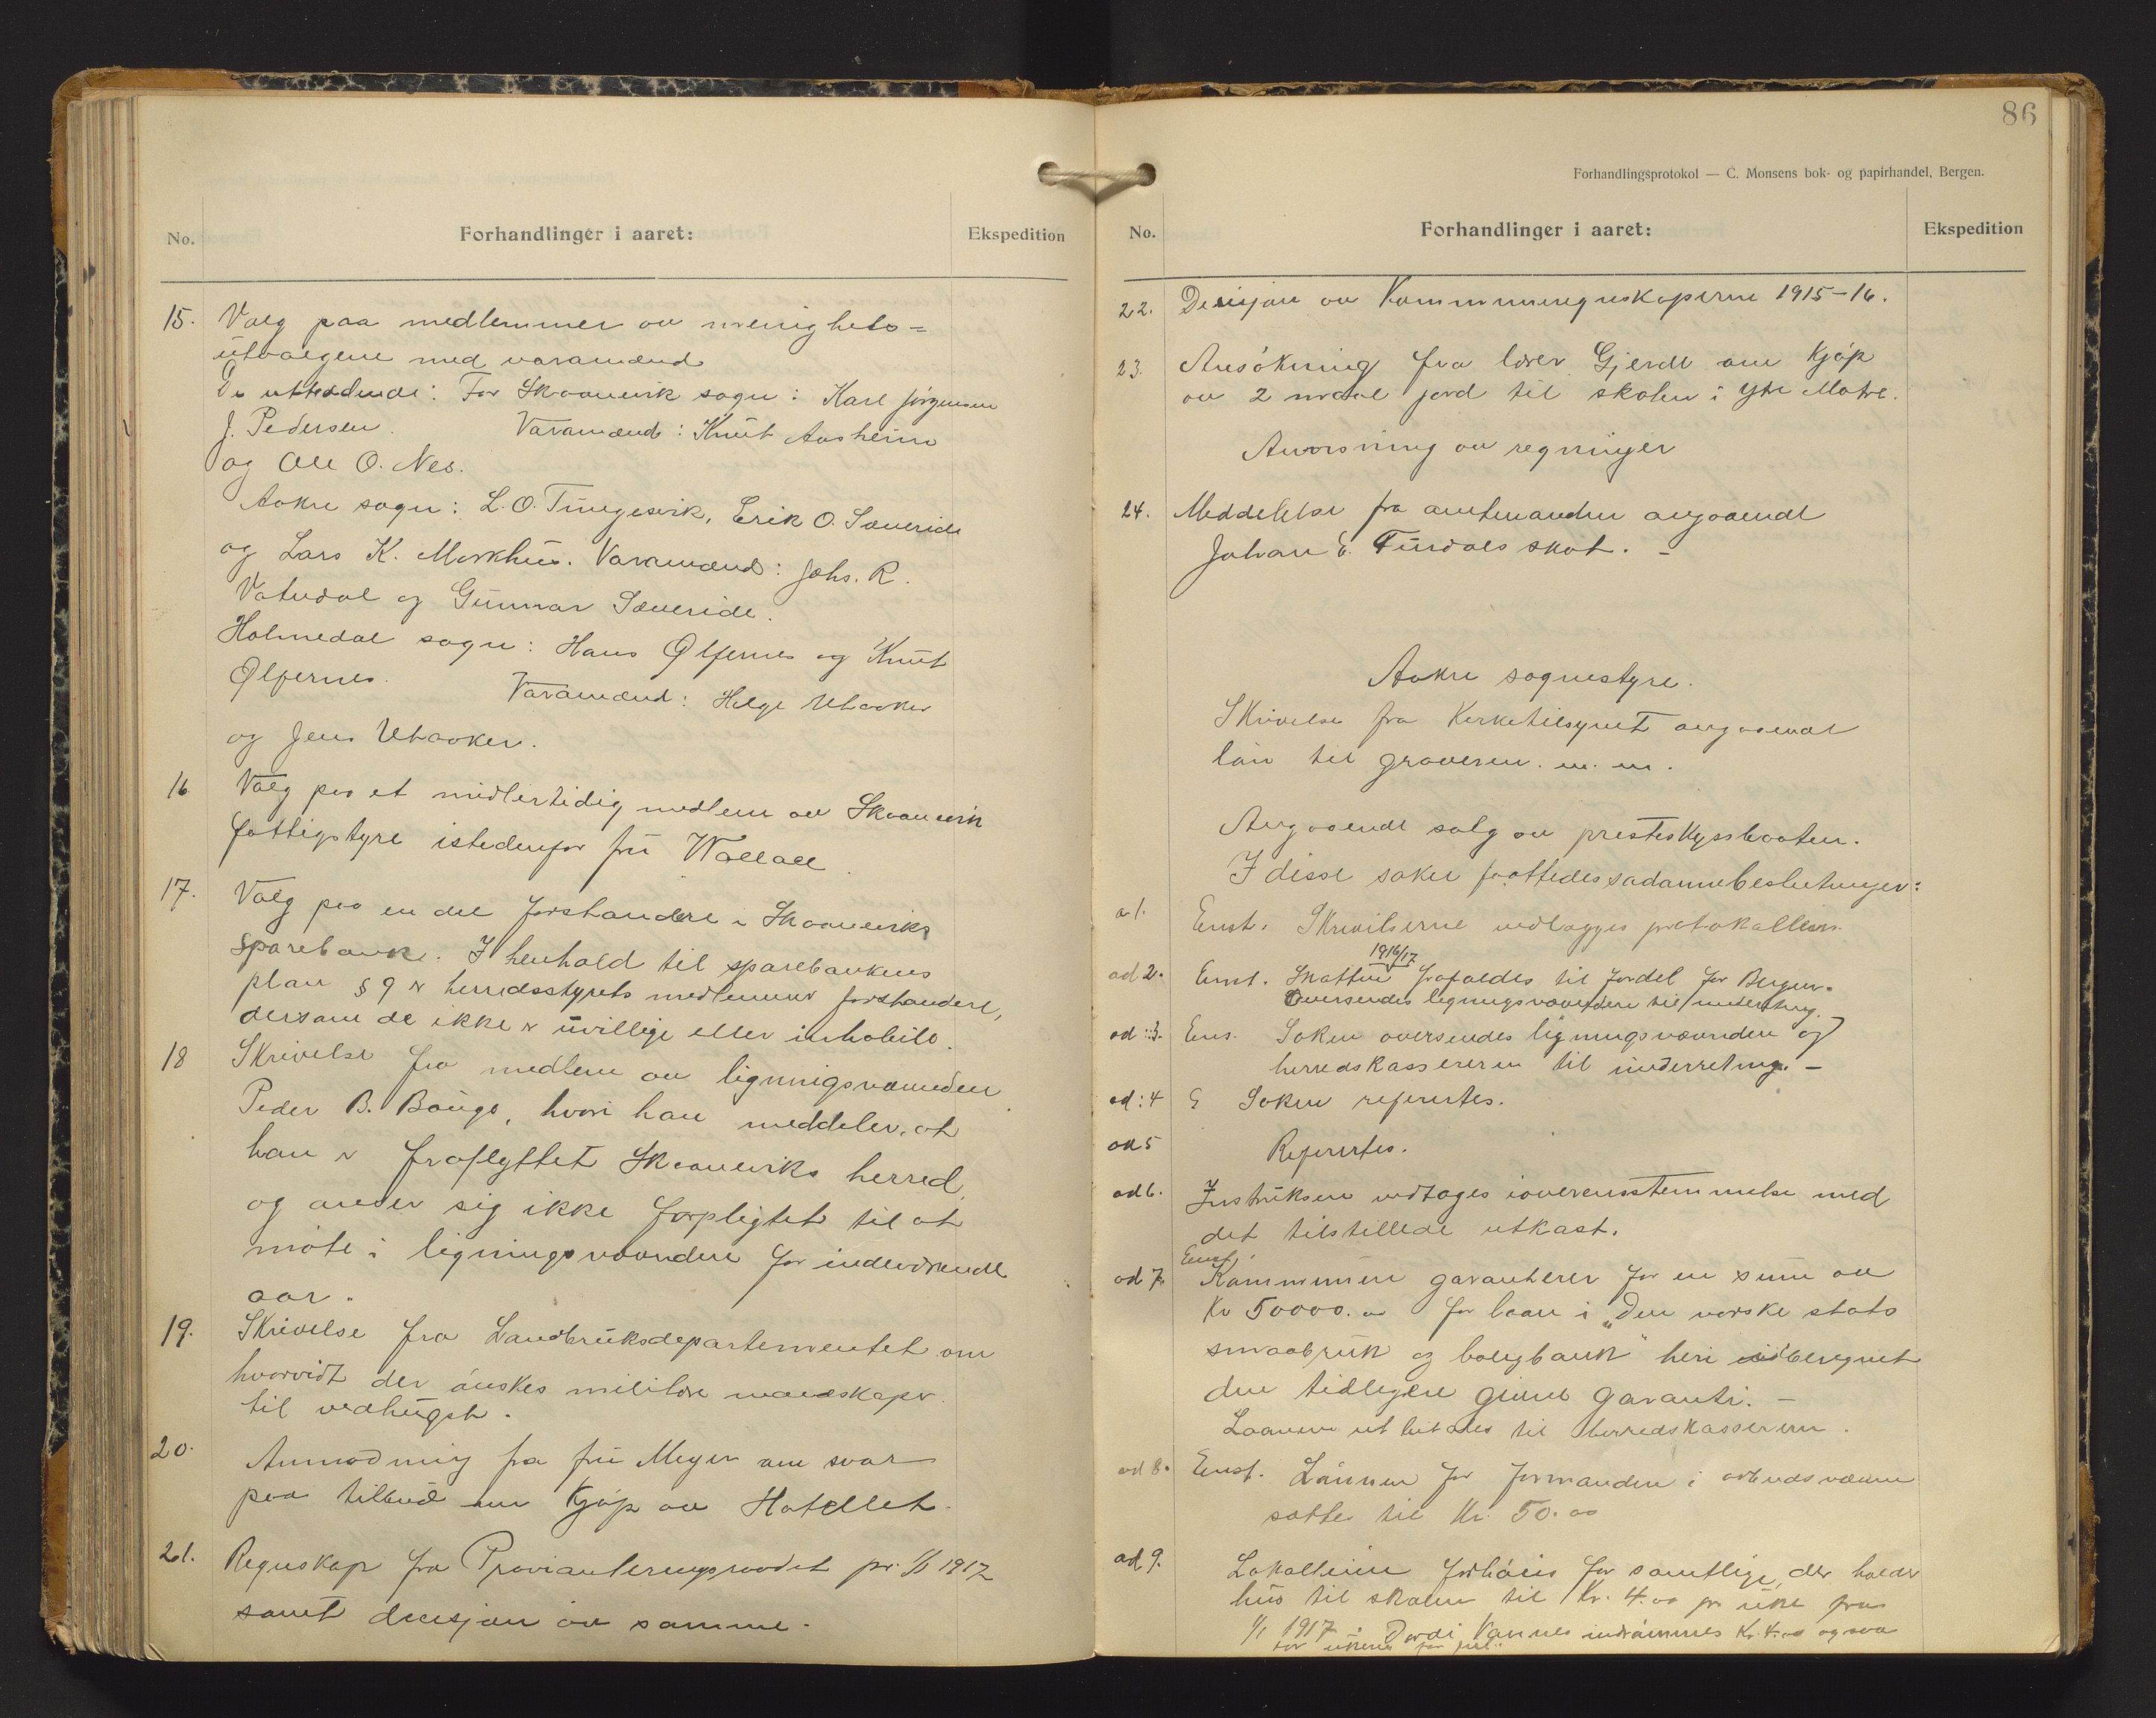 No.
Forhandlinger i aaret:
Ekspedition
15. Valg paa medlemmer av menighets-
utvalgene med varamænd
De uttrædende: For Skaanevik sogn: Karl Jörgensen
J. Pedersen. Varamænd: Knut Aasheim
og Ole O. Nes.
Aakre sogn: L. O. Tungesvik, Erik O. Sæveride
og Lars K. Markhus. Varamænd: Johs. R.
Vatndal og Gunnar Sæveride.
Holmedal sogn: Hans Ølfernes og Knut
Ølfernes. Varamænd: Helge Utaaker
og Jens Utaaker.
16 Valg paa et midlertidig medlem av Skaanevik
fattigstyre istedenfor fru Wallall.
17. Valg paa en del forstandere i Skaaneviks
sparebank. I henhold til sparebankens
plan § 9 er herredsstyrets medlemmer forstandere,
dersom de ikke er uvillige eller inhabile.
18 Skrivelse fra medlem av ligningsnævnden
Peder B. Baugs, hvori han meddeler, at
han er fraflyttet Skaaneviks herred,
og anser sig ikke forpligtet til at
möte i ligningsnævnden for indeværende
aar.
19. Skrivelse fra Landbruksdepartementet om
hvorvidt der önskes militære mandskaper
til vedhugst.
20. Anmodning fra fru Meyer om svar
paa tilbud om kjöp av Hotellet.
21. Regnskap fra Provianteringsraadet pr. 1/1 1917
samt decisjon av samme.
86
Forhandlingsprotokol — C. Monsens bok- og papirhandel, Bergen.
No.
Forhandlinger i aaret:
Ekspedition
22. Decisjon av Kommuneregnskaperne 1915-16.
23. Ansökning fra lærer Gjerde om kjöp
av 2 maal jord til skolen i Ytre Matre.
Anvisning av regninger
24. Meddelelse fra amtmanden angaaende
Johan E. Turdals skat. -
Aakre sognestyre.
Skrivelse fra Kirketilsynet angaaende
lön til graveren. m. m.
Angaaende salg av presteskyssbaaten.
I disse saker fattedes sadanne beslutninger:
a 1. Enst. Skrivelserne vedlægges protokollen.
1916/17
ad 2. Enst. Skatten frafaldes til fordel for Bergen.
Oversendes ligningsnævnden til underretning.
ad: 3. Ens. Saken oversendes ligningsnævnden og
herredskassereren til underretning. -
ad: 4 E Saken refereres.
ad 5 Refereres.
ad 6. Instruksen vedtages i overensstemmelse med
det tilstillede utkast.
Enst.
ad 7. Kommunen garanterer for en sum av
Kr 50000.00 for laan i "Den norske stats
smaabruk og boligbank" heri iberegnet
den tidligere givne garanti. -
Laanene utbetales til herredskassereren.
ad 8. Enst. Lönnen for formanden i
sættes til Kr. 50.00
ad 9. Lokalleien forhöies for samtlige, der holder
hus til skolen til Kr. 4.00 pr uke fra
1/1 1917. Dordi Vannes indrömmes Kr. 4.00 ogsaa
for ukerne før jul.